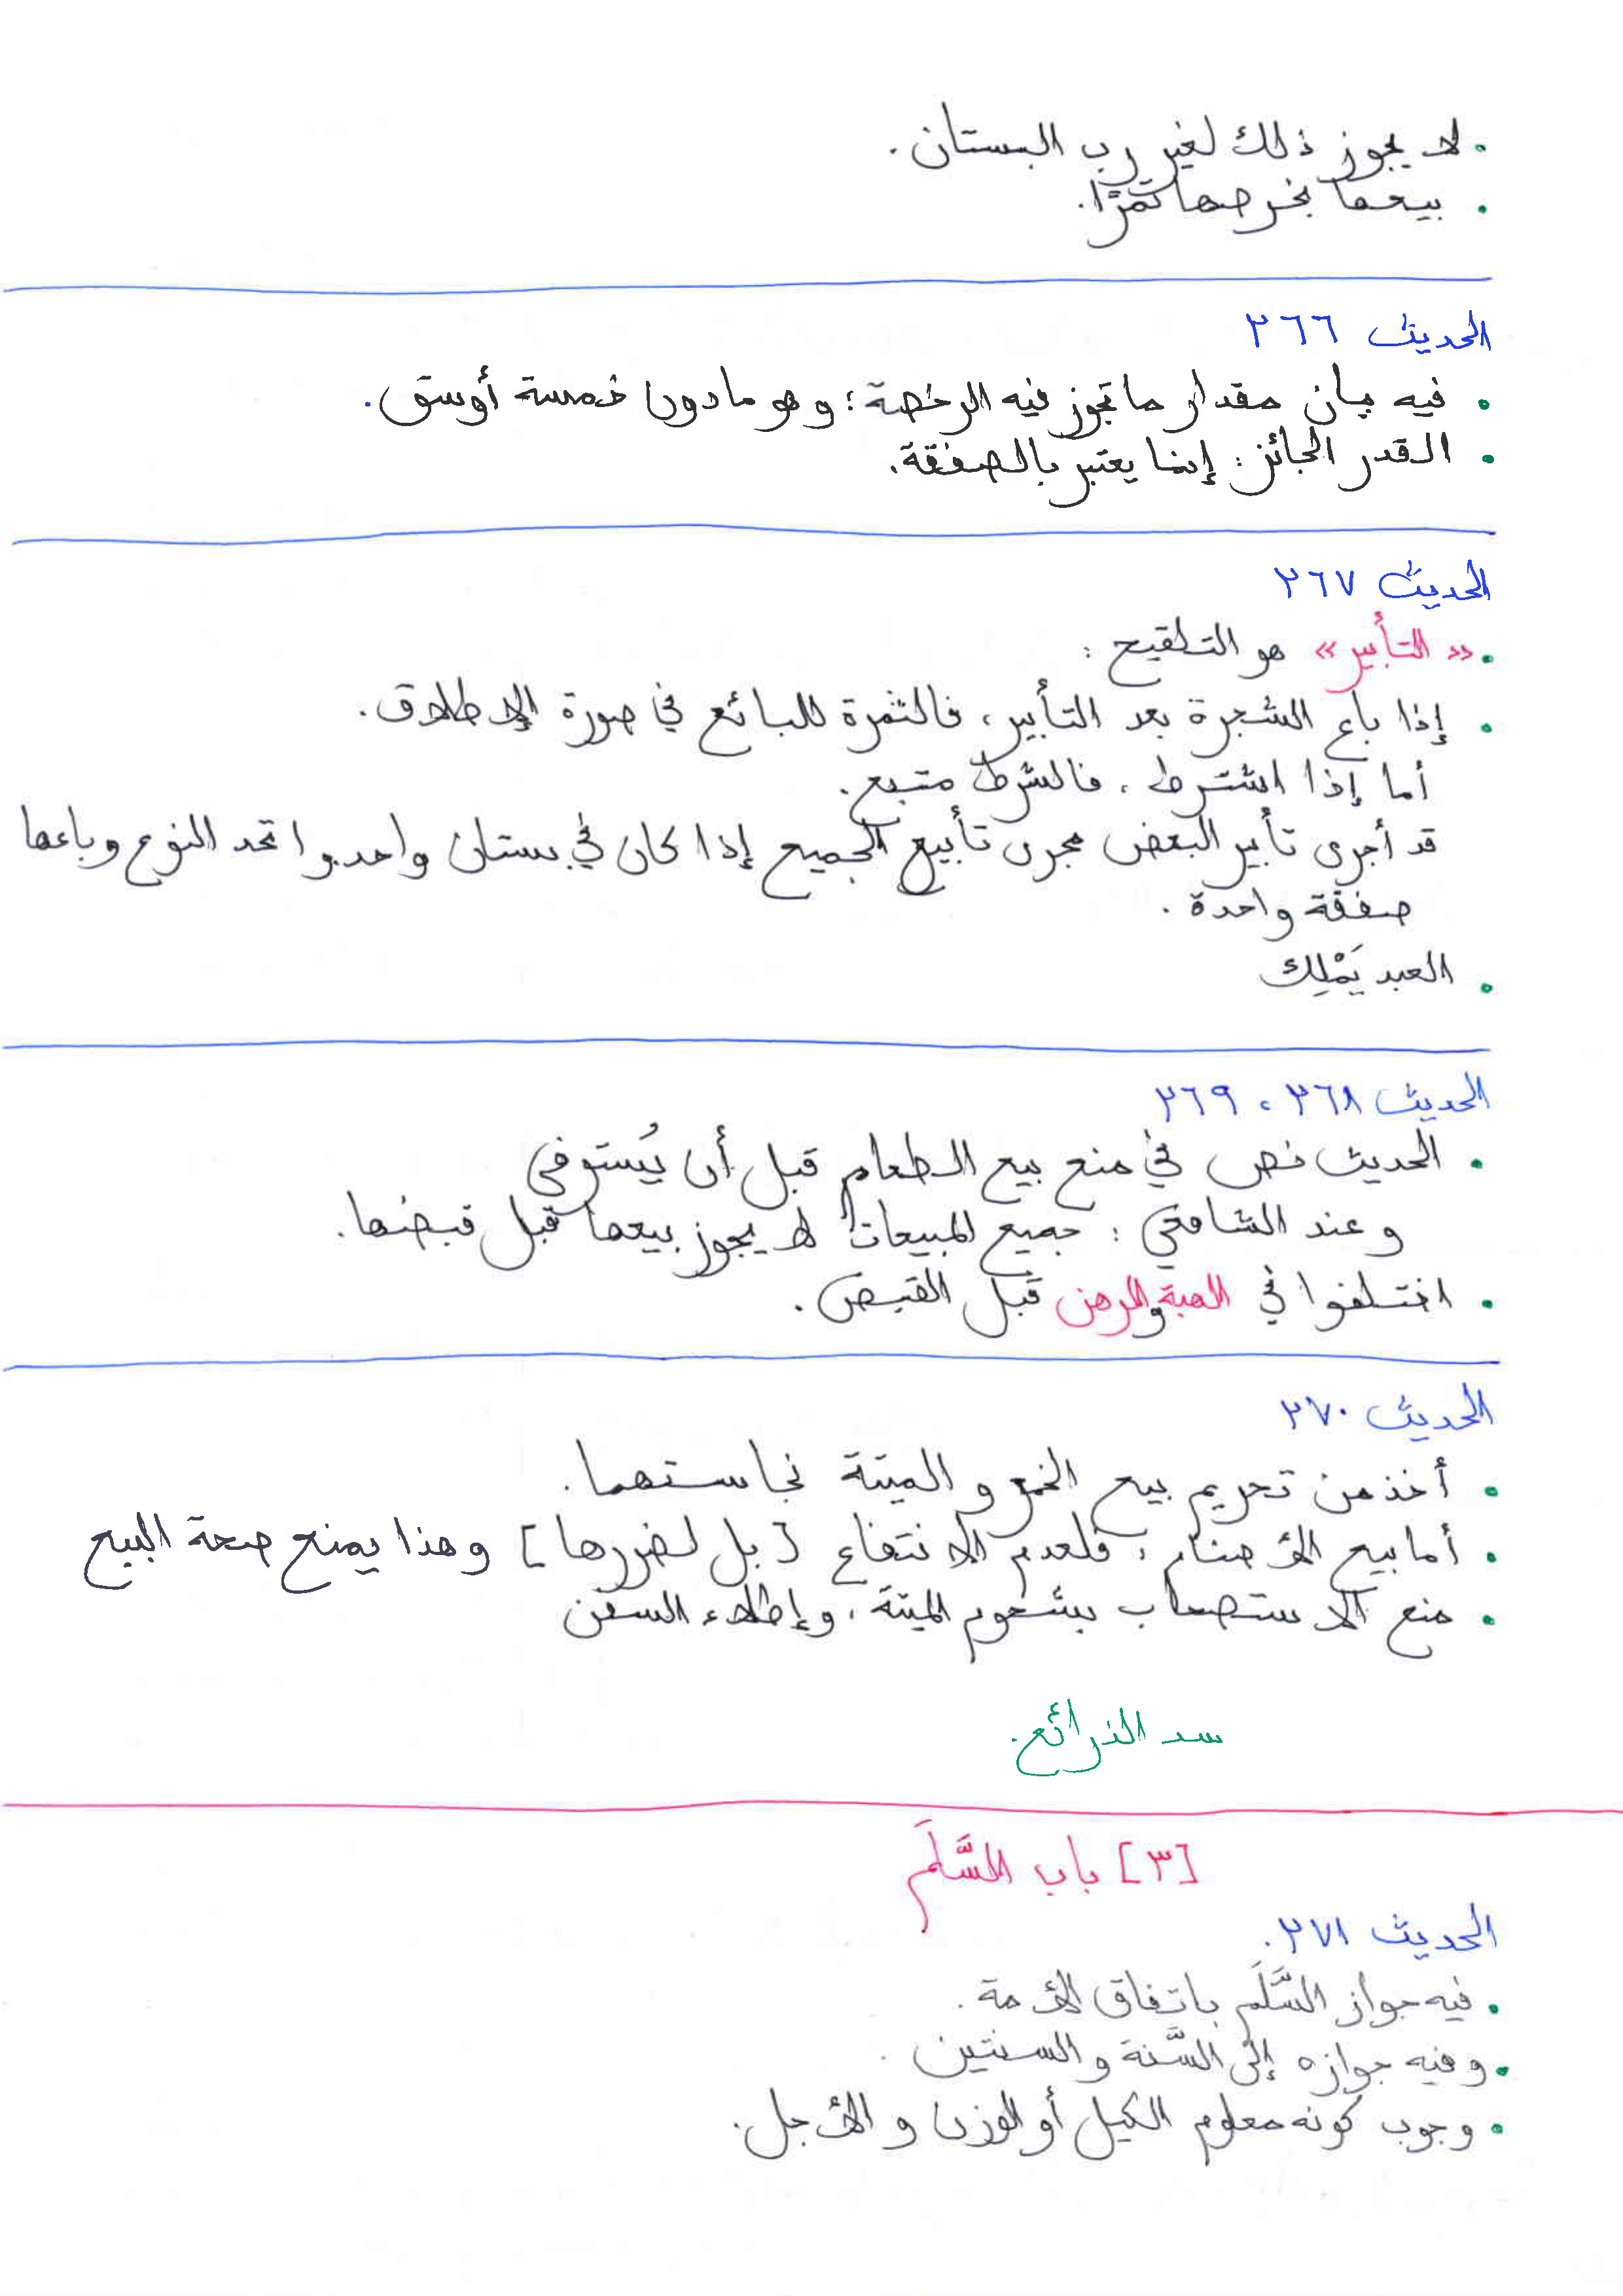 • لا يجوز ذلك لغير رب البستان.
• بيعها بخرصها تمرًا.
الحديث ٢٦٦
• فيه بيان مقدار ما تجوز فيه الرخصة؛ وهو ما دون خمسة أوسق.
• القدر الجائز: إنما يعتبر بالصفقة.
الحديث ٢٦٧
• «التأبير» هو التلقيح:
• إذا باع الشجرة بعد التأبير، فالثمرة للبائع في صورة الإطلاق.
أما إذا اشترط، فالشرط متبع.
قد أجرى تأبير البعض مجرى تأبيع الجميع إذا كان في بستان واحد واتحد النوع وباعها
صفقة واحدة.
• العبد يَمْلِك
الحديث ٢٦٨، ٢٦٩
• الحديث نص في منع بيع الطعام قبل أن يُستوفى
وعند الشافعي: جميع المبيعات لا يجوز بيعها قبل قبضها.
• اختلفوا في الهبة والرهن قبل القبض.
الحديث ٢٧٠
• أخذ من تحريم بيع الخمر والميتة نجاستهما.
• أما بيع الأصنام، فلعدم الانتفاع [بل لضررها] وهذا يمنع صحة البيع
• منع الاستصحاب بشحوم الميتة، وإطلاء السفن
سد الذرائع.
[٣] باب السَّلَم
الحديث ٢٧١.
• فيه جواز السَّلَم باتفاق الأمة.
• وفيه جوازه إلى السَّنة والسنتين.
• وجوب كونه معلوم الكيل أو الوزن والأجل.